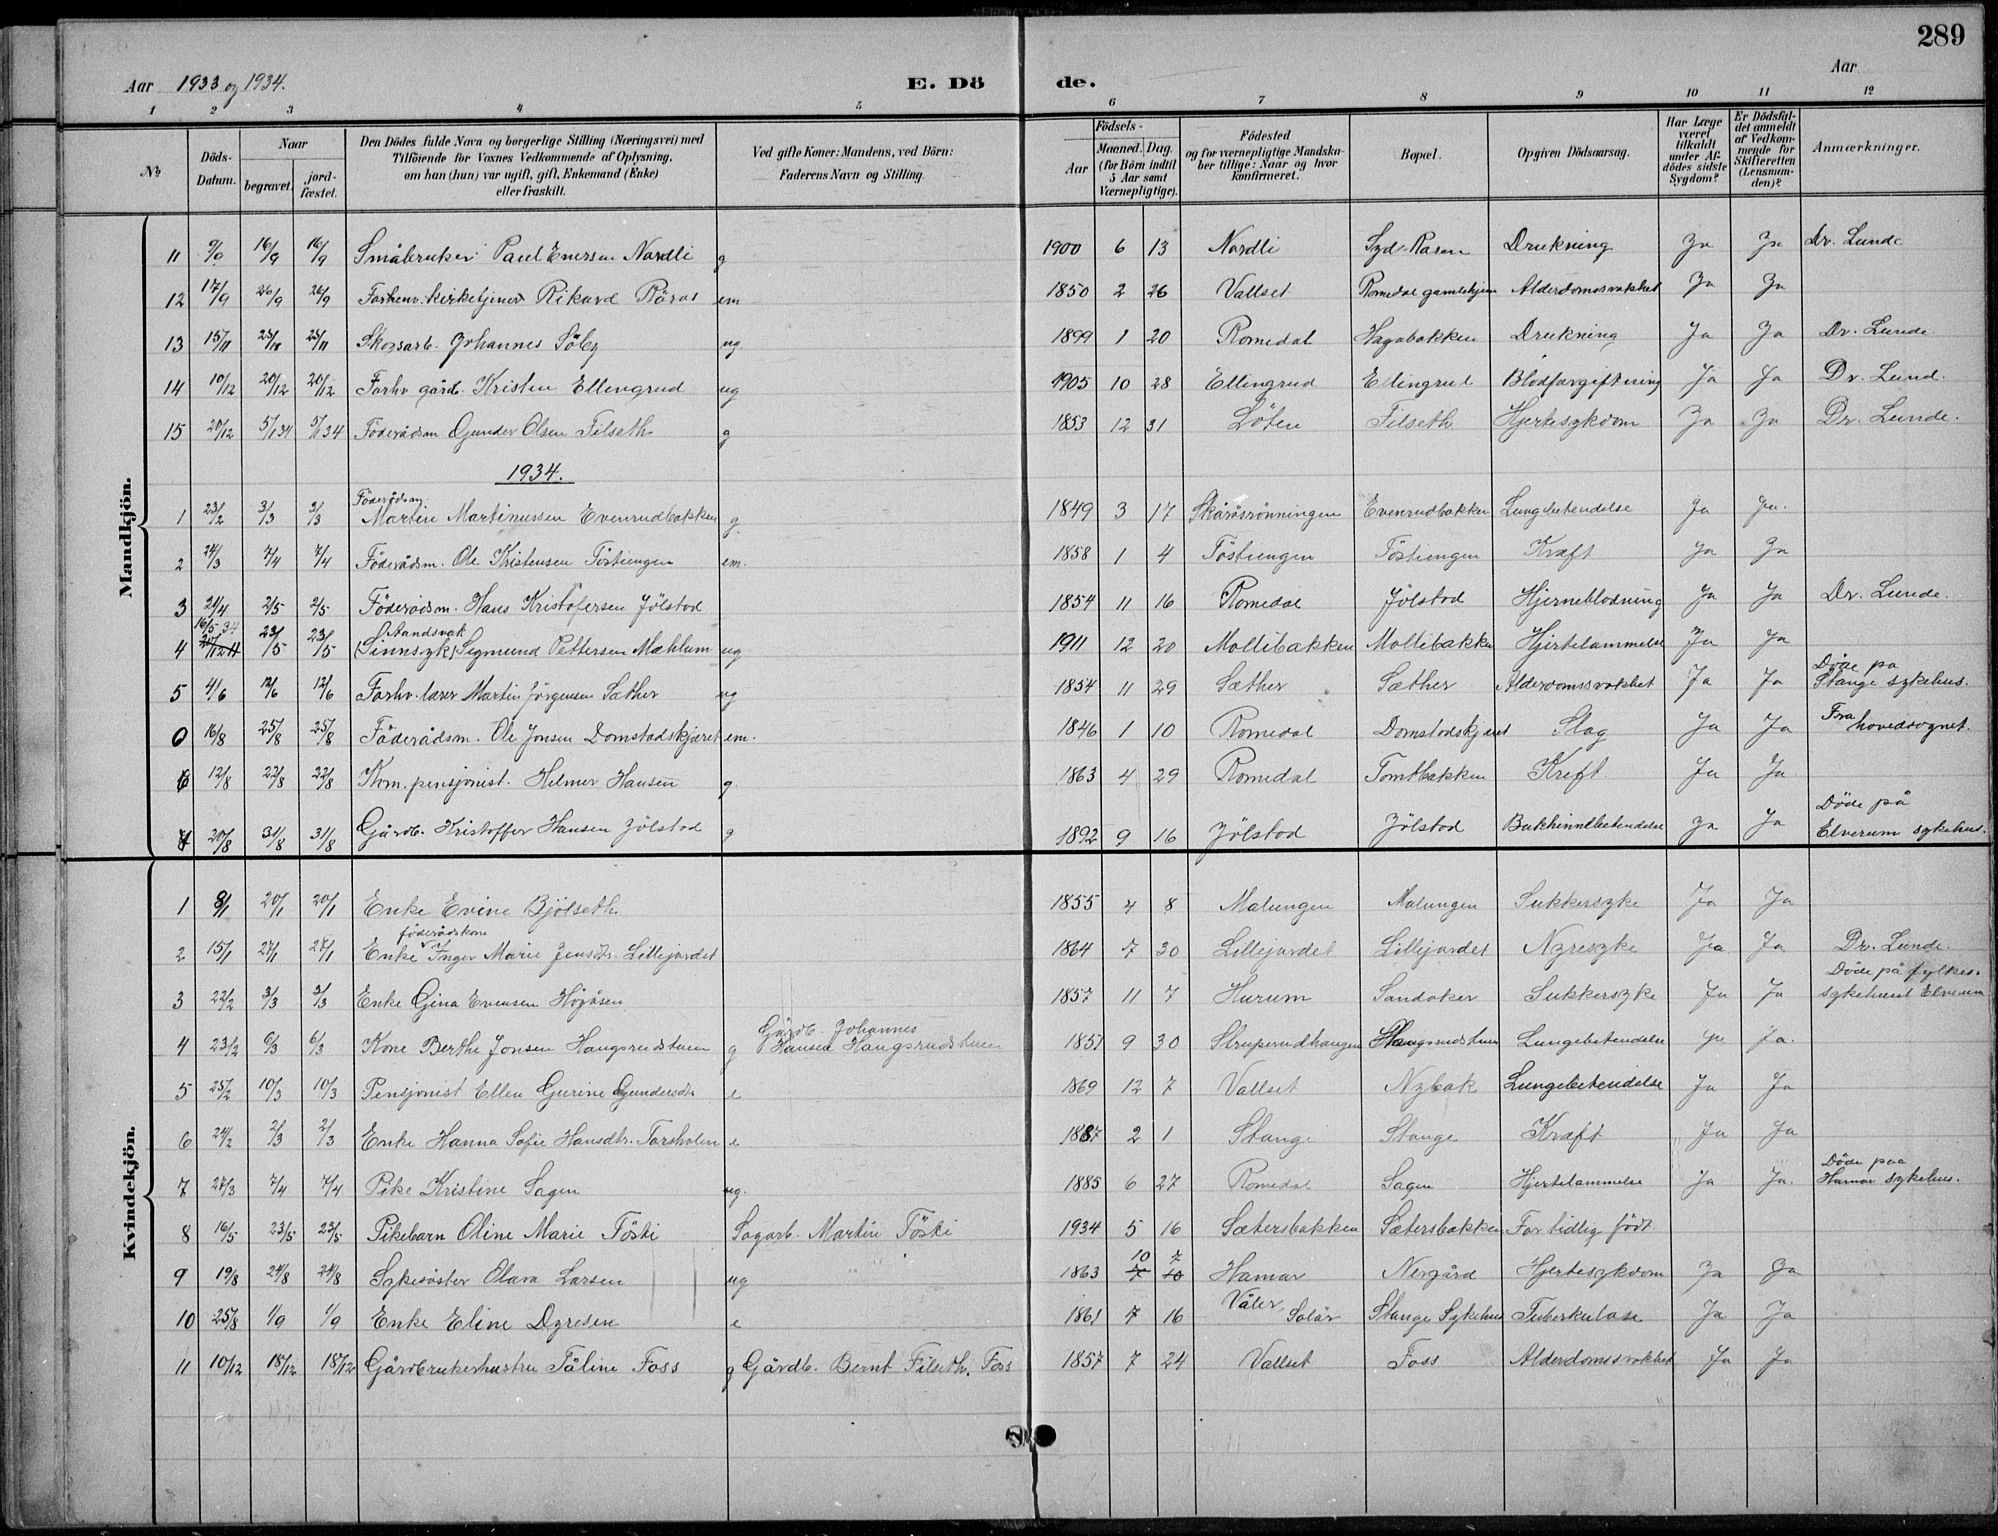 289
Aar 1933 og 1934. E. Dö de. Aar
1 2 3 4 5 6 7 8 9 10 11 12
No. Döds-Datum. Naar begravet. jord-fæstet. Den Dödes fulde Navn og borgerlige Stilling (Næringsvei) med Tilföiende for Voxnes Vedkommende af Oplysning, om han (hun) var ugift, gift, Enkemand (Enke) eller fraskilt. Ved gifte Koner: Mandens, ved Börn: Faderens Navn og Stilling. Födsels- Aar Maaned. Dag. (for Börn indtil 5 Aar samt Værnepligtige). Födested og for værnepligtige Mandskaber tillige: Naar og hvor Konfirmeret. Bopæl. Opgiven Dödsaarsag. Har Læge været tilkaldt under Afdödes sidste Sygdom? Er Dödsfaldet anmeldt af Vedkommende for Skifteretten (Lensmanden)? Anmærkninger.
Mandkjön.
11 9/9 16/9 16/9 Småbruker Paul Enersen Nordli g 1900 6 13 Nordli Syd-Rasen Drukning Ja Ja Dr. Lunde
12 17/9 26/9 26/9 Forhenv. kirketjener Rikard Röros em 1850 2 26 Vallset Romedal gamlehjem Alderdomssvakhet Ja Ja
13 15/11 25/11 25/11 Skogsarb. Johannes Söby ug 1899 1 20 Romedal Hagabakken Drukning Ja Ja Dr. Lunde.
14 10/12 20/12 20/12 Forhv. gårdb. Kristen Ellengrud ug 1905 10 28 Ellengrud Ellingrud Blodforgiftning Ja Ja Dr. Lund.
15 20/12 5/1 34 5/1 34 Föderådsm Gunder Olsen Filseth g 1853 12 31 Löten Filseth Hjertesykdom Ja Ja Dr. Lunde.
1934.
1 23/2 3/3 3/3 Föderådsm. Martin Martinussen Evenrudbakken g. 1849 3 17 Skåråsrönningen Evenrudbakken Lungebetendelse Ja Ja.
2 24/3 7/4 7/4 Föderådsm. Ole Kristensen Töstiengen em. 1858 1 4 Töstiengen Töstiengen Kræft Ja Ja
3 21/4 2/5 2/5 Föderådsm. Hans Kristofersen Jölstad 1854 11 16 Romedal Jölstad Hjerneblodning Ja Ja Dr. Lunde.
4 16/5 34 23/5 23/5 Aandsvak (Sinnsyk) Sigmund Pettersen Mæhlum ug 1911 12 20 Mollibakken Mollibakken Hjertelammelse Ja Ja
5 4/6 12/6 12/6 Forhv. lærer Martin Jörgensen Sæther ug 1854 11 29 Sæther Sæther Alderdomssvakhet Ja Ja Döde på Stange sykehus.
0 16/8 25/8 25/8 Föderådsm. Ole Jonsen Domstadskjæret em. 1846 1 10 Romedal Domstadskjæret Slag Ja Ja Fra hovedsognet.
6 12/8 22/8 22/8 Kom. pensjonist. Helmer Hansen g. 1863 4 29 Romedal Tomtbakken Kreft Ja Ja
7 20/8 31/8 31/8 Gårdb. Kristoffer Hansen Jölstad g 1892 9 16 Jölstad Jölstad Bukhinnebetendelse Ja Ja Döde på Elverum sykehus.
Kvindekjön.
1 8/1 20/1 20/1 Enke Evine Bjölseth 1855 4 8 Malungen Malungen Sukkersyke Ja Ja
2 15/1 27/1 27/1 Enke föderådskone Inger Marie Jensdtr. Lillejordet 1864 7 30 Lillejordet Lillejordet Nyresyke Ja Ja Dr. Lunde.
3 22/2 3/3 3/3 Enke Gina Evensen Höyåsen 1857 11 7 Hurum Sandaker Sukkersyke Ja Ja Döde på fylkessykehuset Elverum
4 23/2 6/3 6/3 Kone Berthe Jonsen Haugsrudstuen g Gårdb. Johannes Hansen Haugsrudstuen 1857 9 30 Struperudhaugen Haugsrudstuen Lungebetendelse Ja Ja.
5 25/2 10/3 10/3 Pensjonist Ellen Gurine Gundersdtr e 1869 12 7 Vallset Nybak Lungebetendelse Ja Ja
6 24/2 2/3 2/3 Enke Hanna Sofie Hansdtr. Torsholm e 1887 2 1 Stange Stange Kræft Ja Ja
7 27/3 7/4 7/4 Pike Kristine Sagen ug. 1885 6 27 Romedal Sagen Hjertelammelse Ja Ja. Döde paa Hamar sykehus.
8 16/5 23/5 23/5 Pikebarn Oline Marie Tösti Sagarb. Martin Tösti 1934 5 16 Sætersbakken Sætersbakken For tidlig födt
9 19/8 24/8 24/8 Sykesöster Olava Larsen ug 1863 10 7 Hamar Nergård Hjertesykdom Ja Ja
10 25/8 1/9 1/9 Enke Eline Dyresen e 1861 7 16 Våler, Solör Stange Sykehus Tuberkulose Ja Ja
11 10/12 18/12 18/12 Gårdbrukerhustru Tåline Foss g Gårdb. Bernt Filseth. Foss 1857 7 24 Vallset Foss Alderdomssvakhet Ja Ja